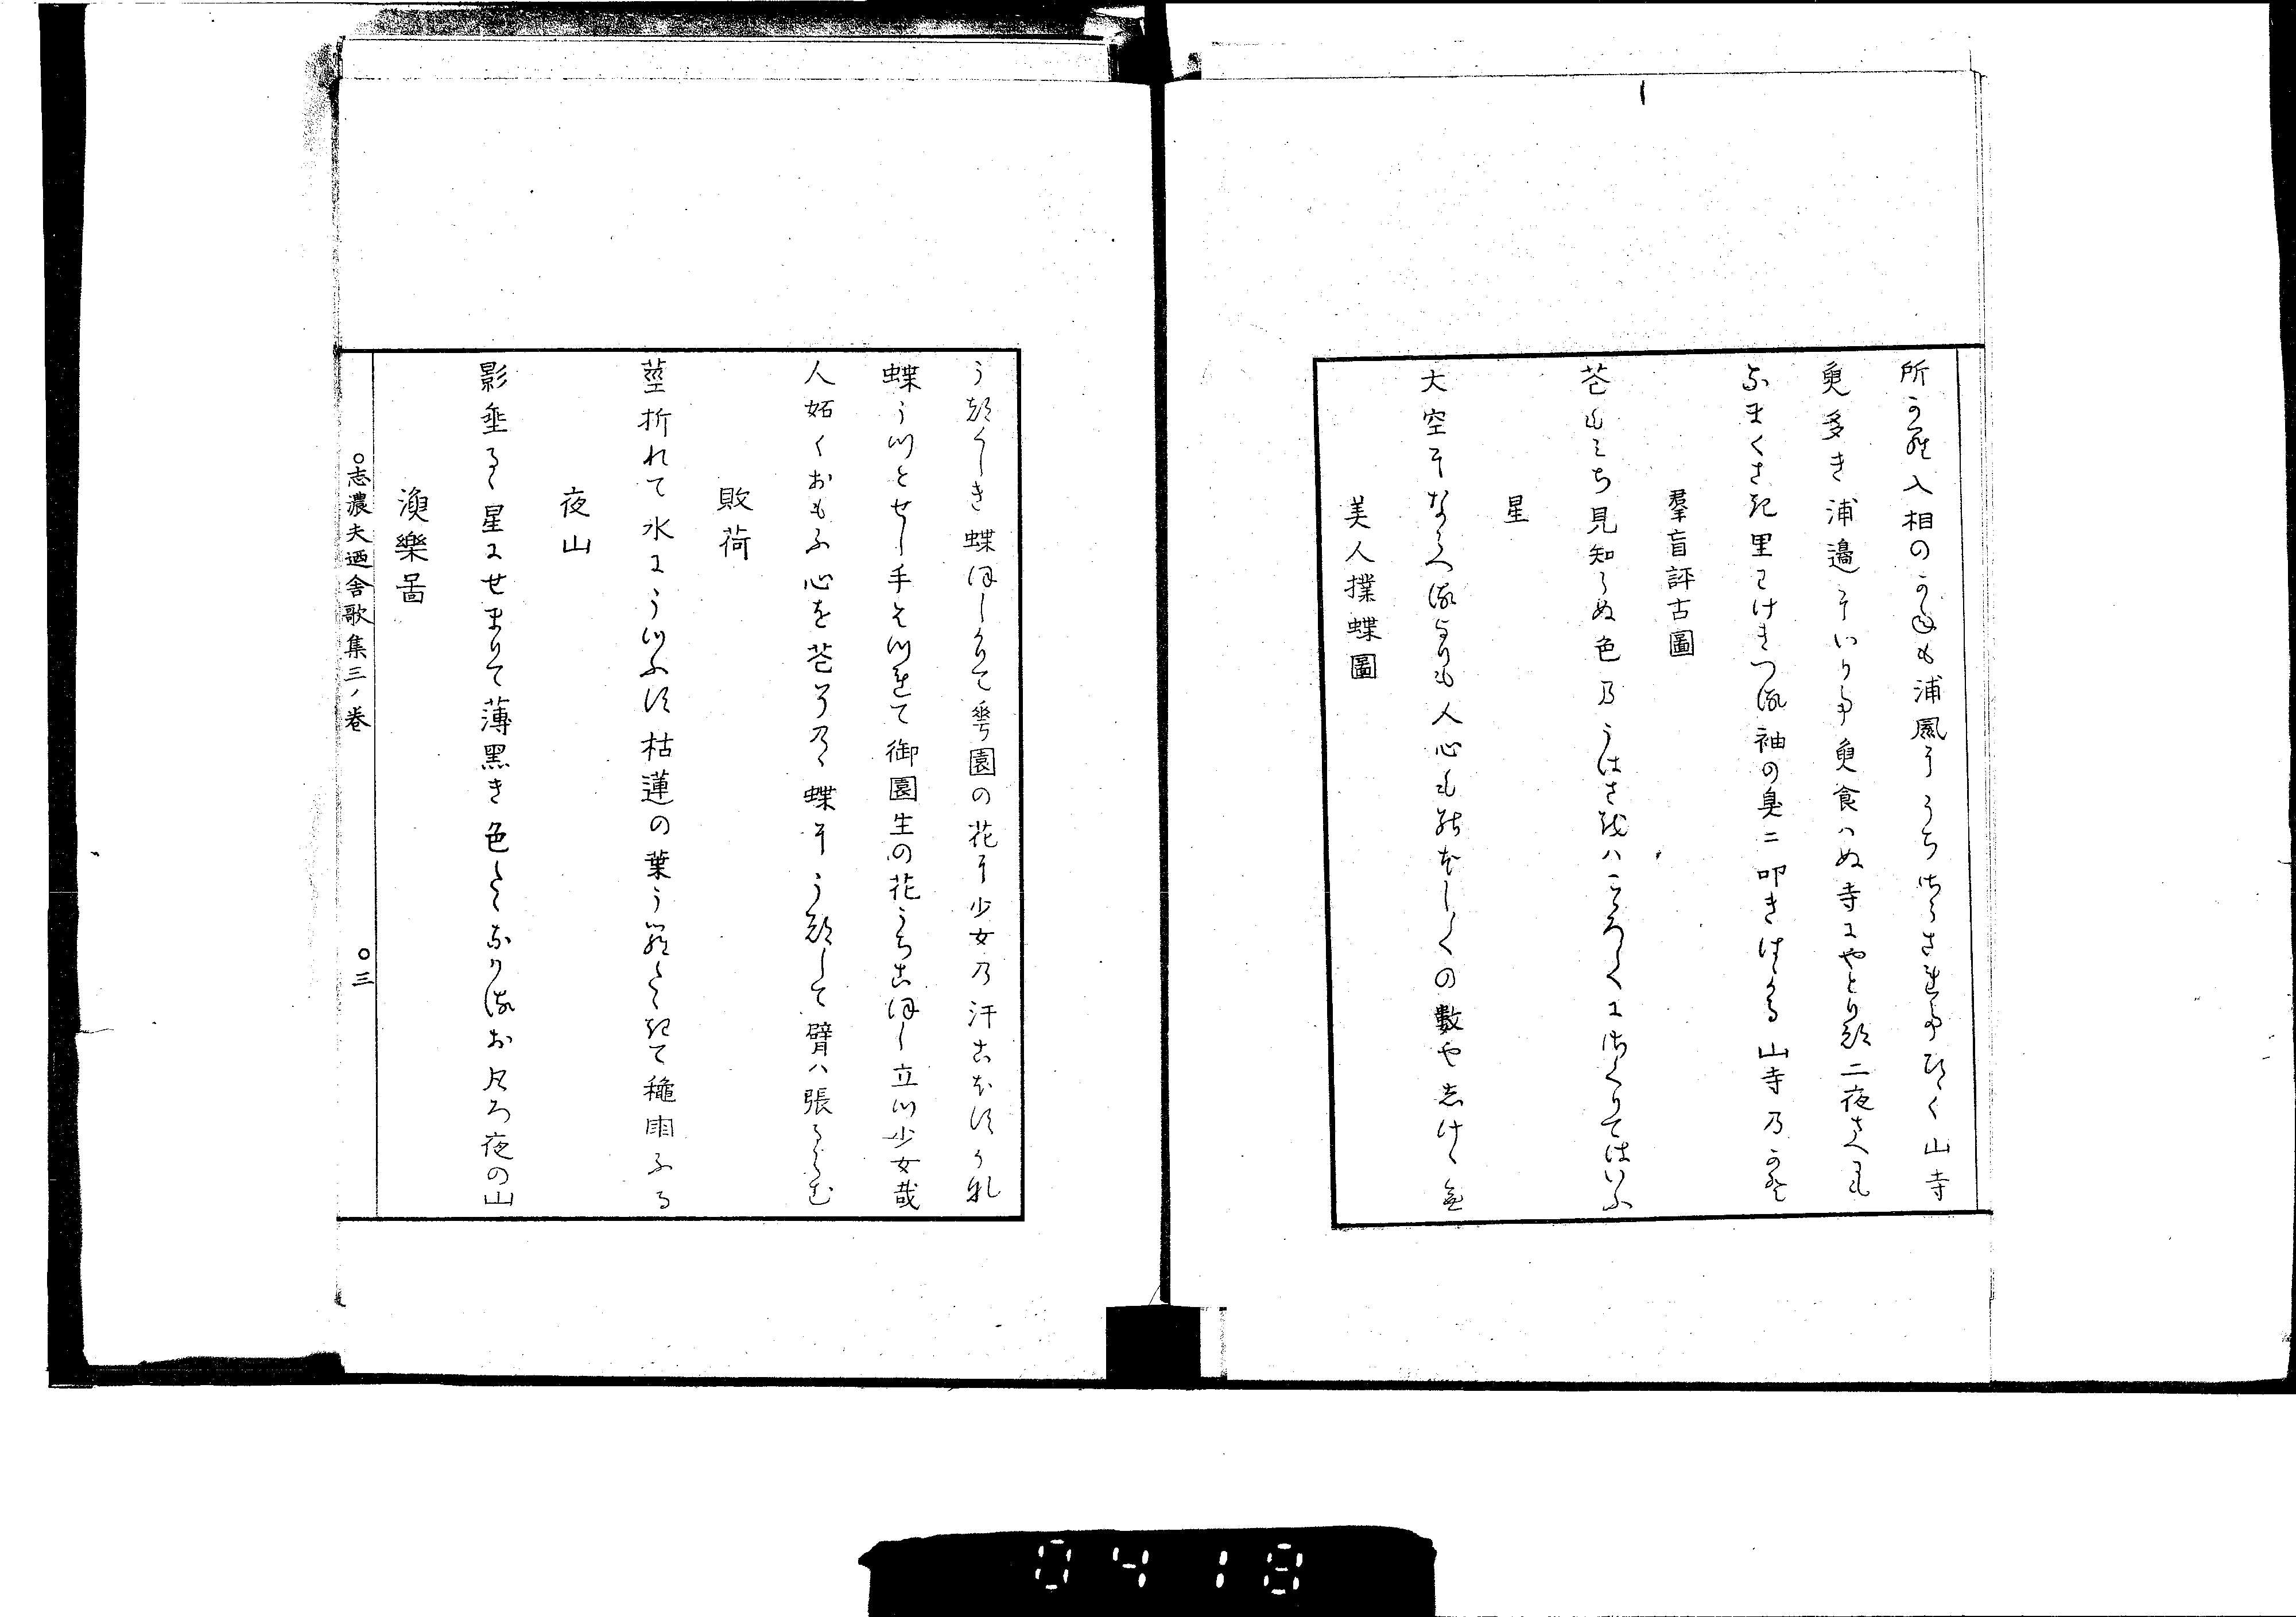 所から入相のかねも浦風にうちけされてひゝく山寺
魚多き浦邊にいりて魚食ハぬ寺にやとりつ二夜さへわれ
なまくさき里わけきつる袖の臭ニ叩きはゝかる山寺乃かと
羣盲評古圖
花もみち見知らぬ色乃うはさをハこゝろ〳〵にさくりてはいふ
星
大空にならへるよりも人心の數や志けゝむ
美人撲蝶圖
うつくしき蝶ほしかりて華園の花に少女乃汗こほすかな
蝶うつとせし手そつれて御園生の花うちこほし立つ少女哉
人妬くおもふ心を花その乃蝶にうつして臂ハ張るらむ
敗荷
莖折れて水にうつふす枯蓮の葉うらたゝきて穐雨ふる
夜山
影垂るゝ星にせまりて薄黑き色たゝなハるおほろ夜の山
漁樂啚
○志濃夫廼舎歌集三ノ巻 ○三
0418